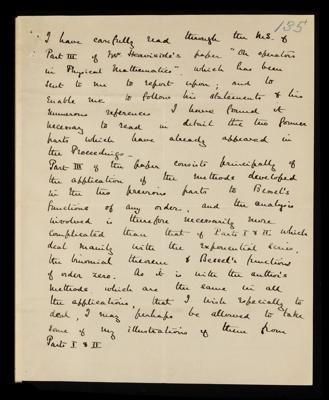 185
I have carefully read through the M.S. of
Part III of Mr Heaviside's paper "On operators
in Physical Mathematics", which has been
sent to me to report upon; and to
enable me to follow his statements & his
numerous references I have found it
necessary to read in detail the two former
parts which have already appeared in
the Proceedings.
Part III of the paper consists principally of
the application of the methods developed
in the two previous parts to Bessel's
functions of any order, and the analysis
involved is therefore necessarily more
complicated than that of Parts I & II, which
deal mainly with the exponential series,
the binomial theorem & Bessel's functions
of order zero. As it is with the author's
methods, which are the same in all
the applications, that I wish especially to
deal, I may perhaps be allowed to take
some of my illustrations of them from
Parts I & II